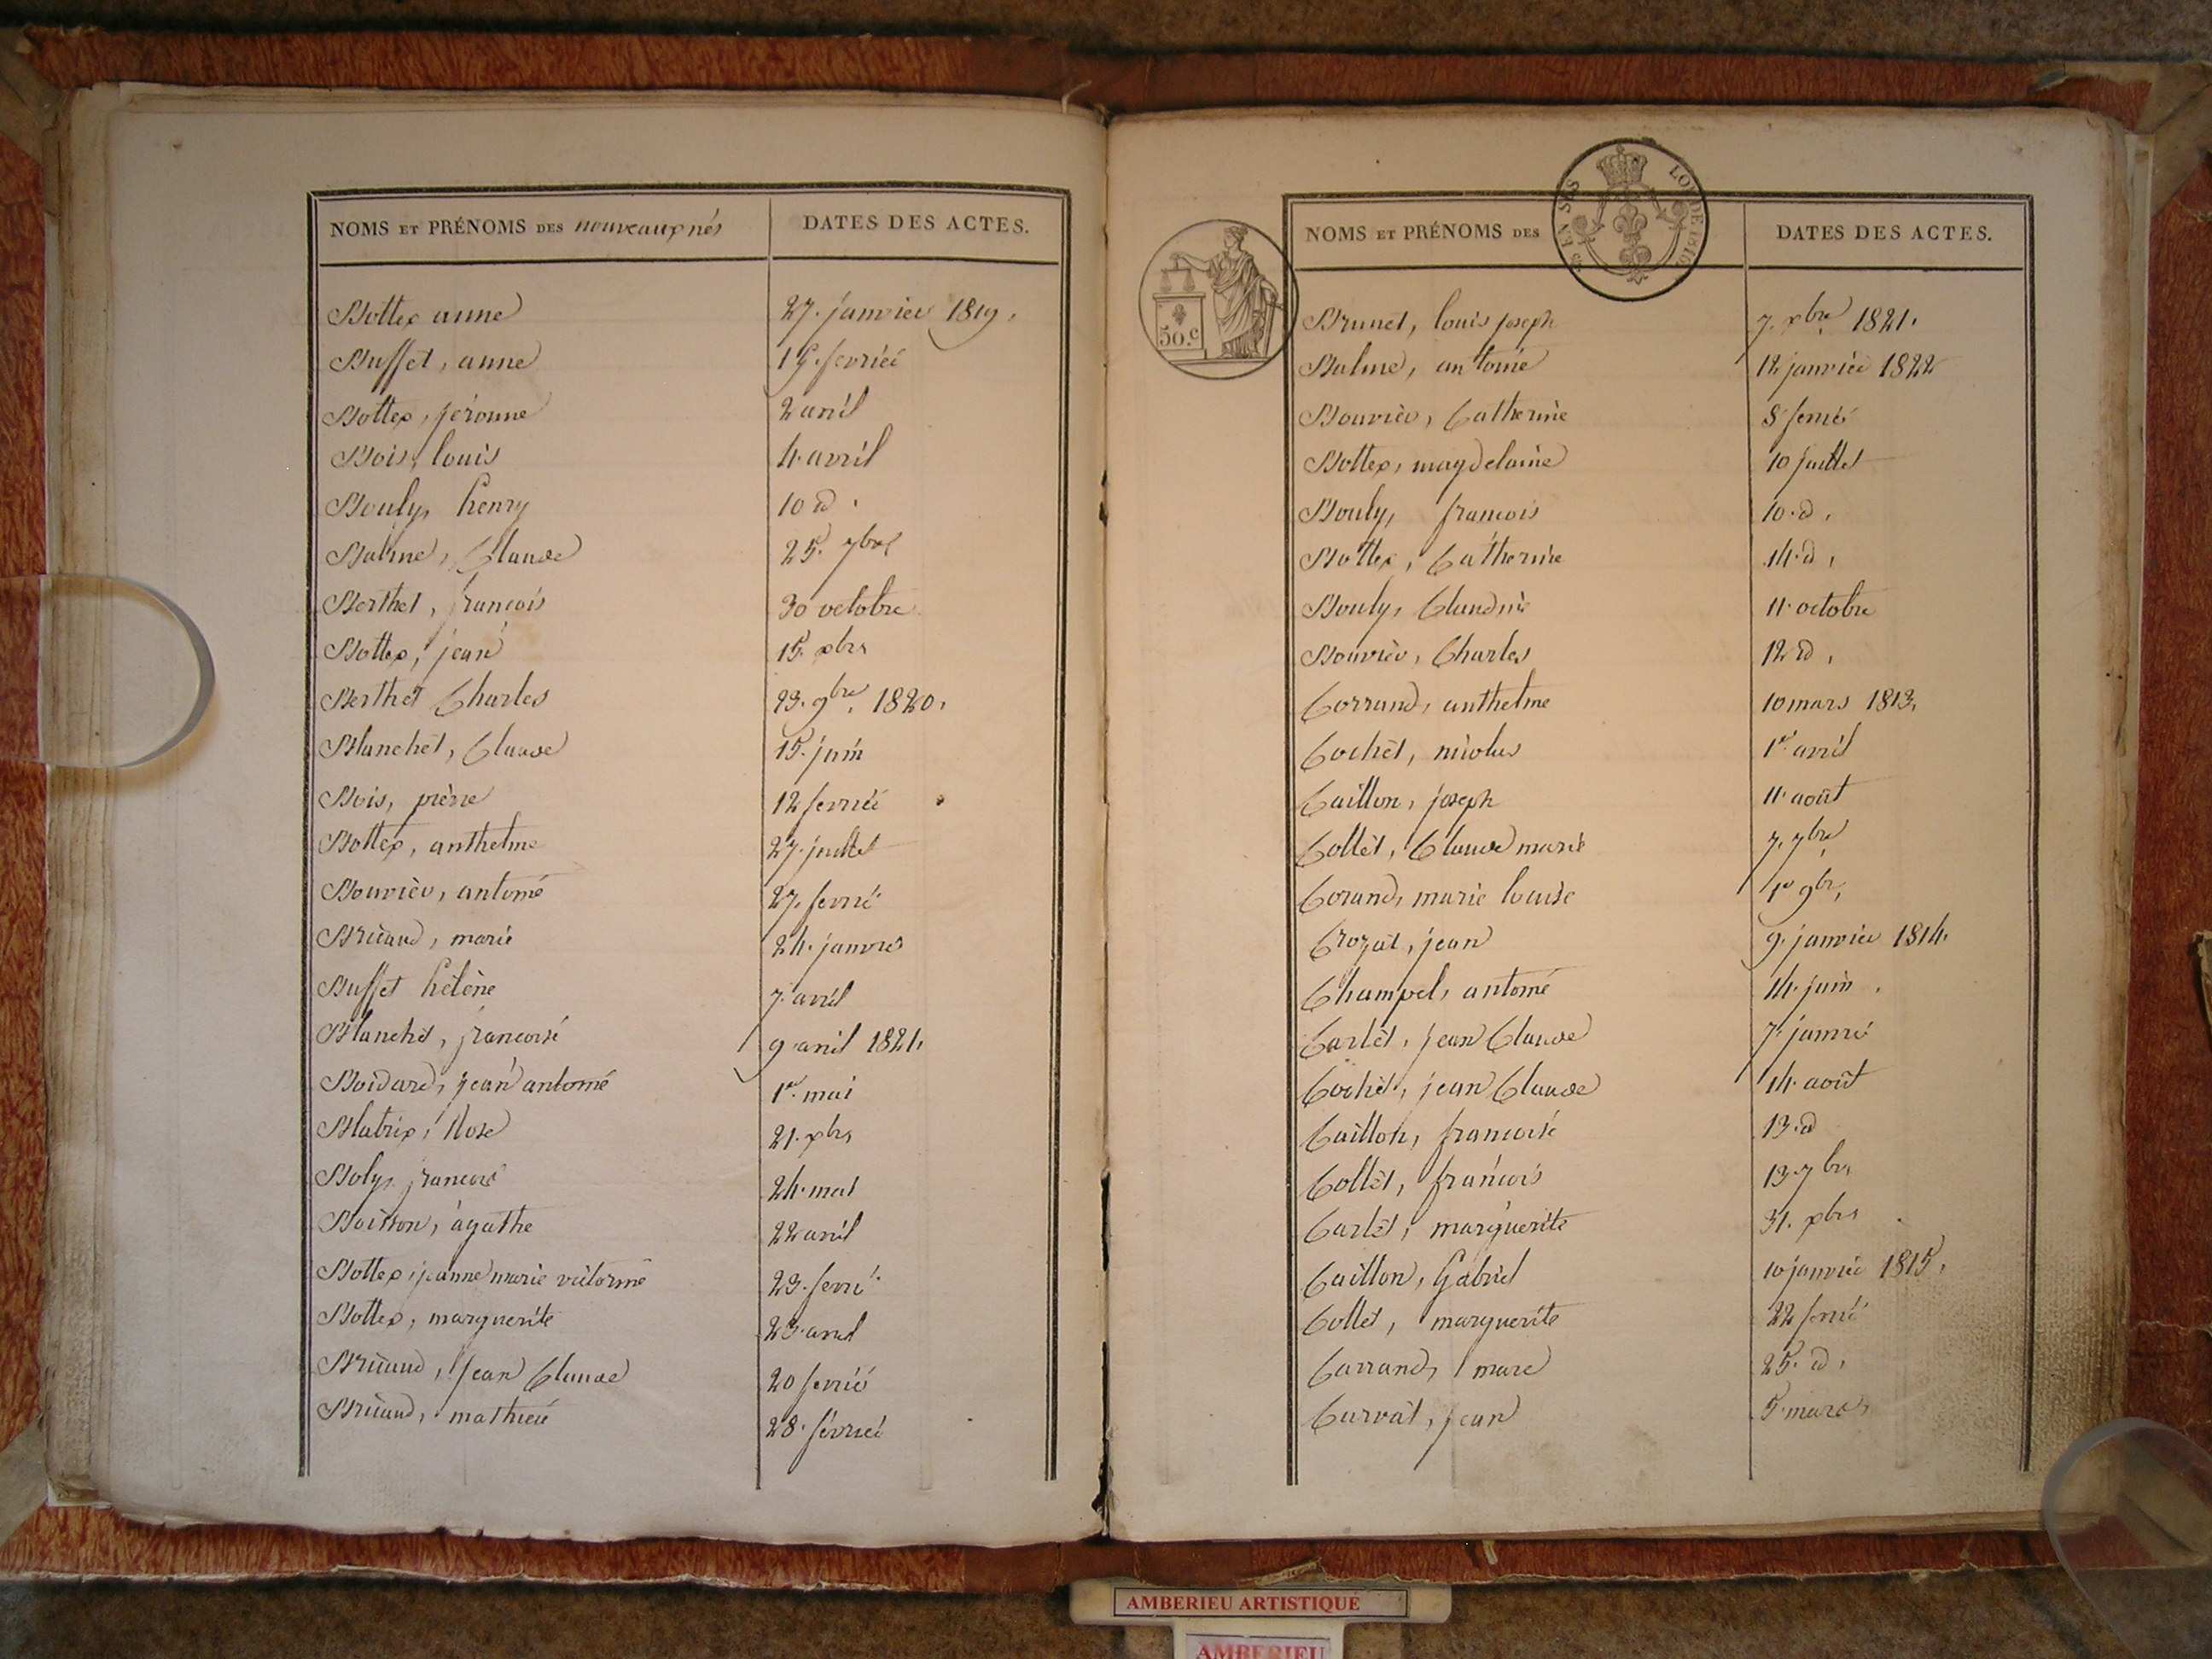 NOMS ET PRÉNOMS DES nouveaux nés DATES DES ACTES.
Bottex anne 27. janvier 1819.
Buffet, anne 19. fevrier
Bottex, jéronne 2 avril
Bois, louis 4. avril
Bouly, henry 10 d.
Balme, Claude 25. 7bre
Berthet, françois 30 octobre
Bottex, jean 15. xbre
Berthet Charles 23. 9bre. 1820.
Blanchet, Claude 15. juin
Bois, pierre 12 fevrier
Bottex, anthelme 27. juillet
Bouvier, antoine 27. fevrier
Bricaud, marie 24. janvier
Buffet hélène 7. avril
Blanchet, francoise 9 avril 1821.
Boidard, jean antoine 1er. mai
Blatrix, Rose 21. xbre
Boly, 24. mai
Boisson, agathe 22 avril
Bottex, jeanne marie victorine 23. fevrier
Bottex, marguerite 23. avril
Bricaud, Jean Claude 20 fevrier
Bricaud, mathieu 28. fevrier
NOMS ET PRÉNOMS DES DATES DES ACTES.
LOI DE 1816
50.c
Brunet, louis joseph 7. xbre 1821.
Balme, antoine 12 janvier 1822
Bouvier, Catherine 8 fevrier
Bottex, magdelaine 10 juillet
Bouly, francois 10. d.
Bottex, Catherine 14. d.
Bouly, Claudine 11. octobre
Bouvier, Charles 12 d.
Corrand, anthelme 10 mars 1813.
Cochet, nicolas 1er. avril
Caillon, joseph 11. août
Collet, Claude marie 7. 7bre
Corand, marie louise 1er 9bre.
Crozat, jean 9. janvier 1814.
Champel, antoine 14. juin.
Carlet, jean Claude 7. janvier
Cochet, jean Claude 14. août
Caillon, francoise 13. d
Collet, francois 13. 7bre
Carlet, marguerite 31. xbre
Caillon, Gabriel 10 janvier 1815.
Collet, marguerite 22 fevrier
Carrand, marc 25. d.
Curvat, jean 5. mars
AMBERIEU ARTISTIQUE
AMBERIEU